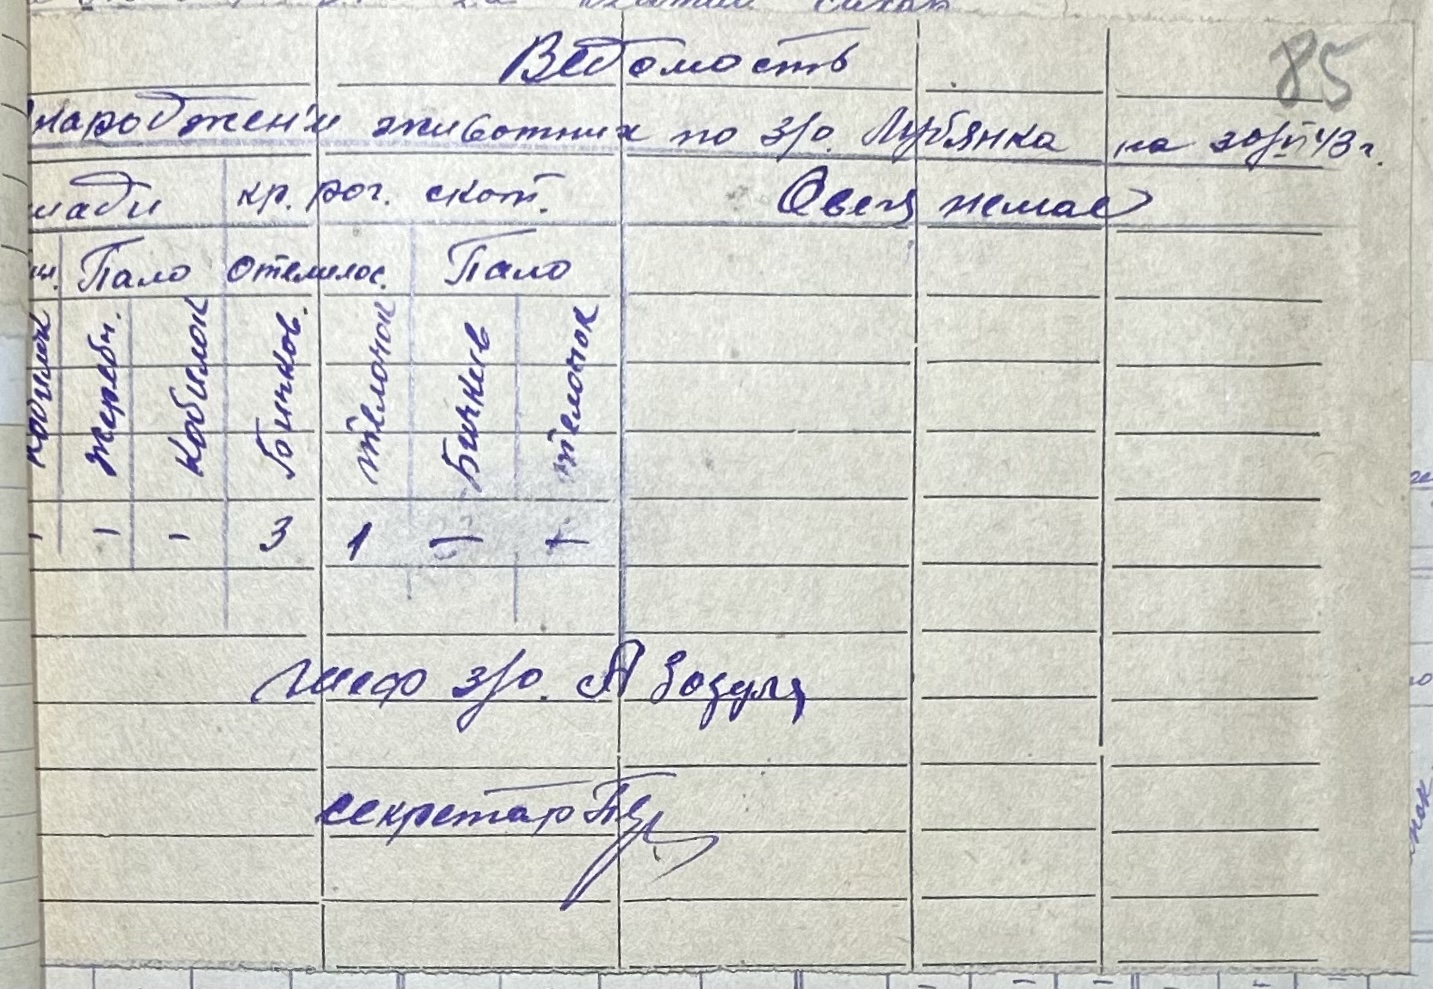 85
Ведомость
народжен'я животних по з/о. Лубянка на 20/VI 43 г.
шади кр. рог. скот. Овец немає
Пало отелилос. Пало
кобилок жеребч. Кобилок Бичков. телочок Бичків телочок
- - - 3 1 - -
шеф з/о. А Зозуля
секретар